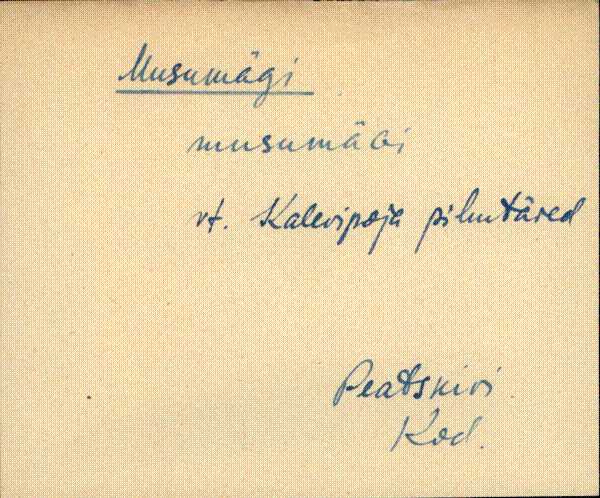 Musumägi
musumäGi
vt. Kalevipoja pihutäied
Peatskivi
Kod.